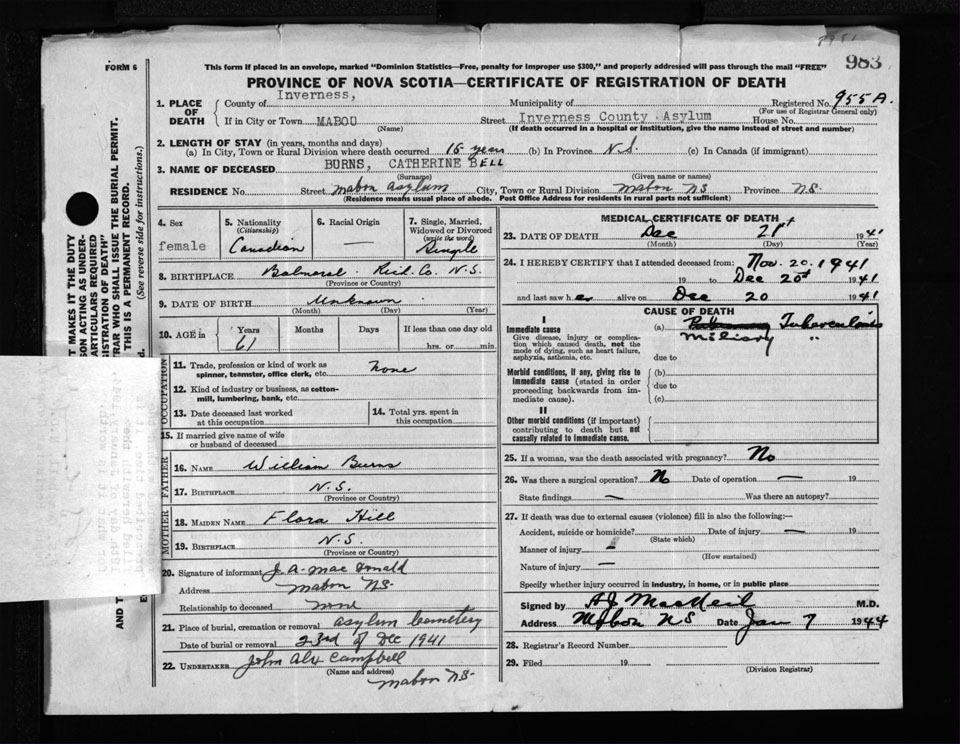 9981
983
FORM 6
This form if placed in an envelope, marked "Dominion Statistics—Free, penalty for improper use $300," and properly addressed will pass through the mail "FREE"
PROVINCE OF NOVA SCOTIA—CERTIFICATE OF REGISTRATION OF DEATH
1. PLACE OF DEATH
County of Inverness, Municipality of Registered No. 955 A.
(For use of Registrar General only)
If in City or Town MABOU Street Inverness County Asylum House No.
(Name) (If death occurred in a hospital or institution, give the name instead of street and number)
2. LENGTH OF STAY (in years, months and days)
(a) In City, Town or Rural Division where death occurred 15 years (b) In Province N.S. (c) In Canada (if immigrant)
3. NAME OF DECEASED BURNS, CATHERINE BELL
(Surname) (Given name or names)
RESIDENCE No. Street Mabou Asylum City, Town or Rural Division Mabou NS Province N.S.
(Residence means usual place of abode. Post Office Address for residents in rural parts not sufficient)
4. Sex
female
5. Nationality
(Citizenship)
Canadian
6. Racial Origin
—
7. Single, Married, Widowed or Divorced
(write the word)
Single
8. BIRTHPLACE Balmoral Rich. Co. N.S.
9. DATE OF BIRTH Unknown
(Month) (Day) (Year)
10. AGE in Years Months Days If less than one day old
61 hrs. or min.
OCCUPATION
11. Trade, profession or kind of work as spinner, teamster, office clerk, etc. None
12. Kind of industry or business, as cotton-mill, lumbering, bank, etc.
13. Date deceased last worked at this occupation
14. Total yrs. spent in this occupation
15. If married give name of wife or husband of deceased
FATHER
16. NAME William Burns
17. BIRTHPLACE N.S.
(Province or Country)
MOTHER
18. MAIDEN NAME Flora Hill
19. BIRTHPLACE N.S.
(Province or Country)
20. Signature of informant J. A. Mac Donald
Address Mabou NS.
Relationship to deceased none
21. Place of burial, cremation or removal Asylum Cemetery
Date of burial or removal 23rd of Dec 1941
22. UNDERTAKER John Alex Campbell
(Name and address)
Mabou NS.
MEDICAL CERTIFICATE OF DEATH
23. DATE OF DEATH Dec 21st 1941
(Month) (Day) (Year)
24. I HEREBY CERTIFY that I attended deceased from: Nov. 20. 1941
19 to Dec 20th 1941
and last saw her alive on Dec 20 1941
CAUSE OF DEATH
I
Immediate cause
Give disease, injury or complication which caused death, not the mode of dying, such as heart failure, asphyxia, asthenia, etc.
(a) Tuberculosis
Miliary "
due to
Morbid conditions, if any, giving rise to immediate cause (stated in order proceeding backwards from immediate cause).
(b)
due to
(c)
II
Other morbid conditions (if important) contributing to death but not causally related to immediate cause.
25. If a woman, was the death associated with pregnancy? No
26. Was there a surgical operation? No Date of operation — 19
State findings — Was there an autopsy?
27. If death was due to external causes (violence) fill in also the following:—
Accident, suicide or homicide? Date of injury — 19
(State which)
Manner of injury —
(How sustained)
Nature of injury —
Specify whether injury occurred in industry, in home, or in public place
Signed by A J MacNeil M.D.
Address Mabou NS Date Jan 7 1944
28. Registrar's Record Number
29. Filed 19
(Division Registrar)